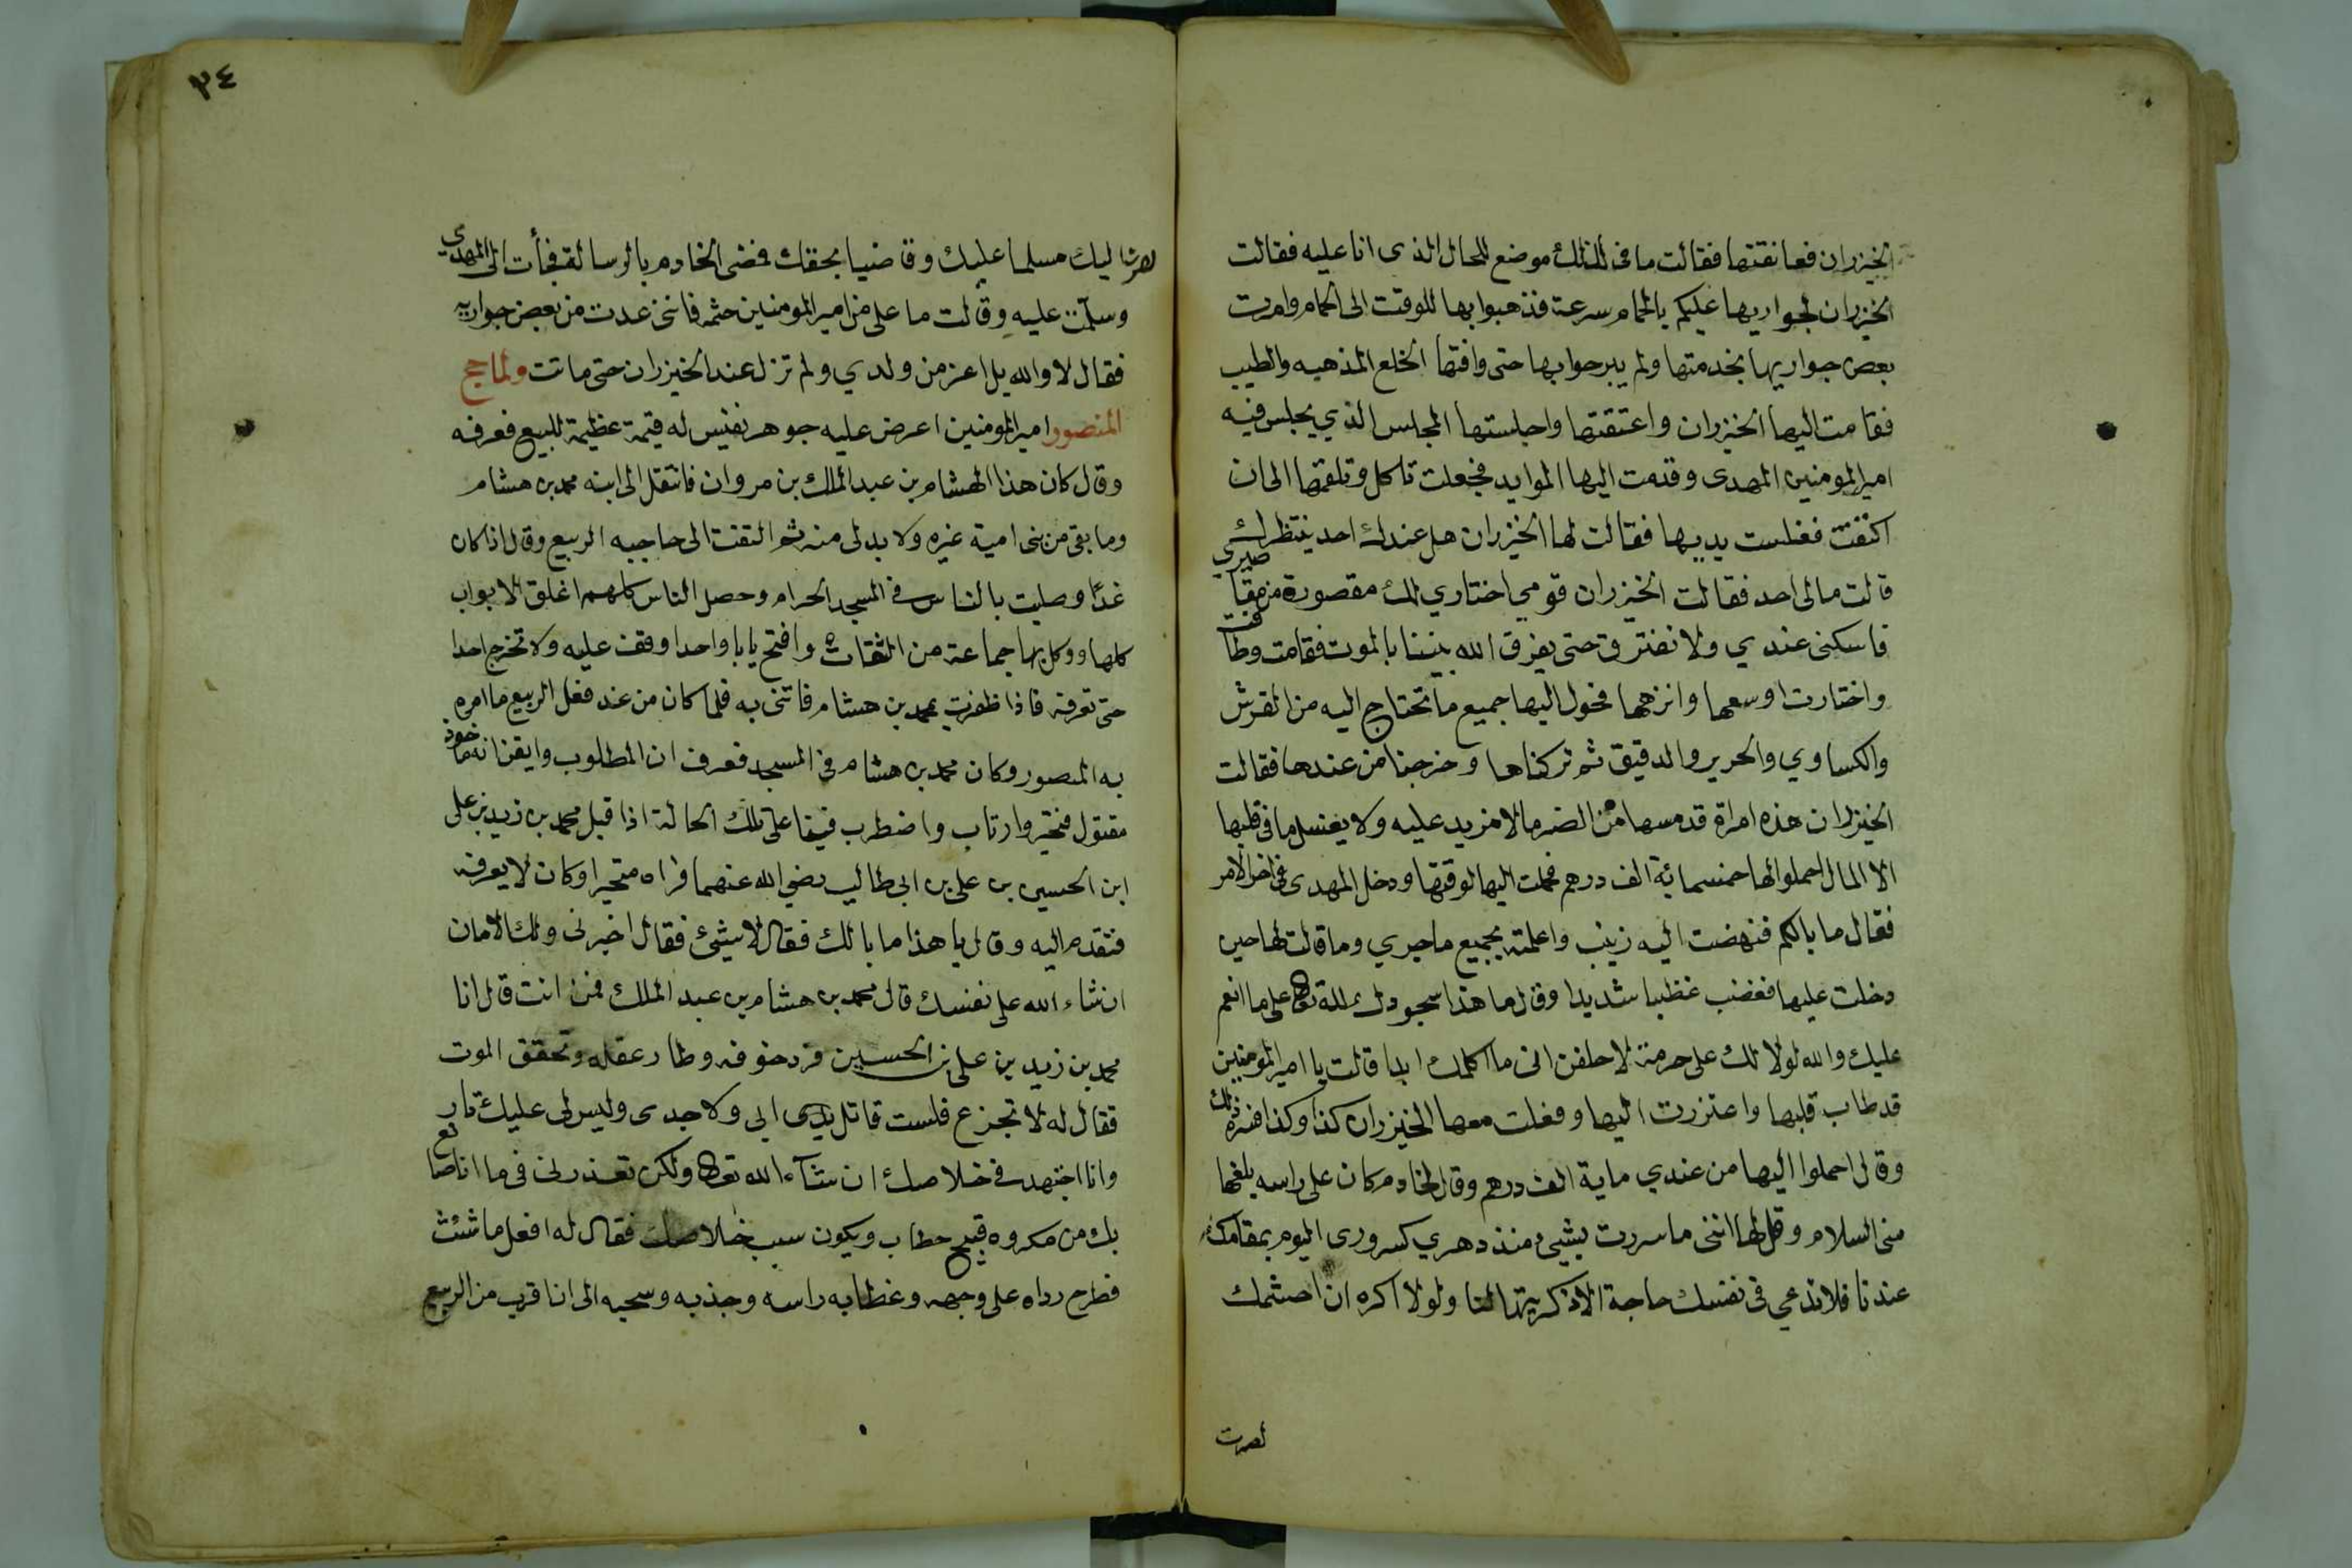 الخيزران فعانقتها فقالت ما في لذلك موضع للحال الذي انا عليه فقالت
الخيزران لجواريها عليكم بالحمام سرعة فذهبوا بها للوقت الى الحمام وامرت
بعض جواريها بخدمتها ولم يبرحوا بها حتى وافتها الخلع المذهبه والطيب
فقامت اليها الخيزران واعتقتها واجلستها المجلس الذي يجلس فيه
امير المومنين المهدى وقدمت اليها الموايد فجعلت تاكل وتلقمها الى ان
اكتفت فغلست يديها فقالت لها الخيزران هل عندك احد ينتظرك
قالت مالى احد فقالت الخيزران قومي اختاري لك مقصورة من مقاصيري
فاسكنى عندي ولا نفترق حتى يفرق الله بيننا بالموت فقامت وطافت
واختارت اوسعها وانزهها فحول اليها جميع ما تحتاج اليه من الفرش
والكساوي والحرير والدقيق ثم تركناها وخرجنا من عندها فقالت
الخيزران هذه امراة قد مسها من الضر ما لا مزيد عليه ولا يغسل ما في قلبها
الا المال احملوا لها خمسمائة الف درهم فحملت اليها لوقتها ودخل المهدى في اخر الامر
فقال ما بالكم فنهضت اليه زينب واعلمته بجميع ما جري وما قالت لها حين
دخلت عليها فغضب غظبا شديدا وقال ما هذا سجودك لله تعالى على ما انعم
عليك والله لولا لك على حرمة لاحلفن انى ما اكلمك ابدا قالت يا امير المومنين
قد طاب قلبها واعتزرت اليها وفعلت معها الخيزران كذا وكذا فسره ذلك
وقال احملوا اليها من عندي ماية الف درهم وقال لخادم كان على راسه بلغها
منى السلام وقل لها اننى ما سررت بشيء منذ دهري كسرورى اليوم بمقامك
عندنا فلا تدعي في نفسك حاجة الا ذكريتها لنا ولولا اكره ان احشمك
لصرت
٣٤
لصرت اليك مسلما عليك وقاضيا بحقك فمضى الخادم بالرسالة فجأت الى المهدى
وسلمت عليه وقالت ما على من امير المومنين حشمه فاننى عدت من بعض جواريه
فقال لا والله بل اعز من ولدي ولم تزل عند الخيزران حتى ماتت ولما حج
المنصور امير المومنين اعرض عليه جوهر نفيس له قيمة عظيمة للبيع فعرفه
وقال كان هذا لهشام بن عبد الملك بن مروان فانتقل الى ابنه محمد بن هشام
وما بقى من بنى امية غيره ولا بد لى منه ثم التفت الى حاجبه الربيع وقال اذا كان
غدًا وصليت بالناس في المسجد الحرام وحصل الناس كلهم اغلق الابواب
كلها ووكل بها جماعة من الثقات وافتح بابا واحدا وقف عليه ولا تخرج احدا
حتى تعرفه فاذا ظفرت بمحمد بن هشام فاتنى به فلما كان من غد فعل الربيع ما امره
به المنصور وكان محمد بن هشام في المسجد فعرف ان المطلوب وايقن انه ماخوذ
مقتول فتحير وارتاب واضطرب فبيتما على تلك الحالة اذا قبل محمد بن زيد بن على
ابن الحسين بن على بن ابى طالب رضي الله عنهما فراه متحيرا وكان لا يعرفه
فتقدم اليه وقال يا هذا ما بالك فقال لا شيئ فقال اخبرنى ولك الامان
ان شاء الله على نفسك قال محمد بن هشام بن عبد الملك فمن انت قال انا
محمد بن زيد بن على بن الحسين فزد خوفه وطار عقله وتحقق الموت
فقال له لا تجزع فلست قاتل ابى ولا جدى وليس لى عليك تار
وانا اجتهد في خلاصك ان شآء الله تعالى ولكن تعذرنى في ما انا صانع
بك من مكروه قبيح خطاب ويكون سبب خلاصك فقال له افعل ما شئت
فطرح رداه على وجهه وغطا به راسه وجذبه وسحبه الى انا قرب من الربيع